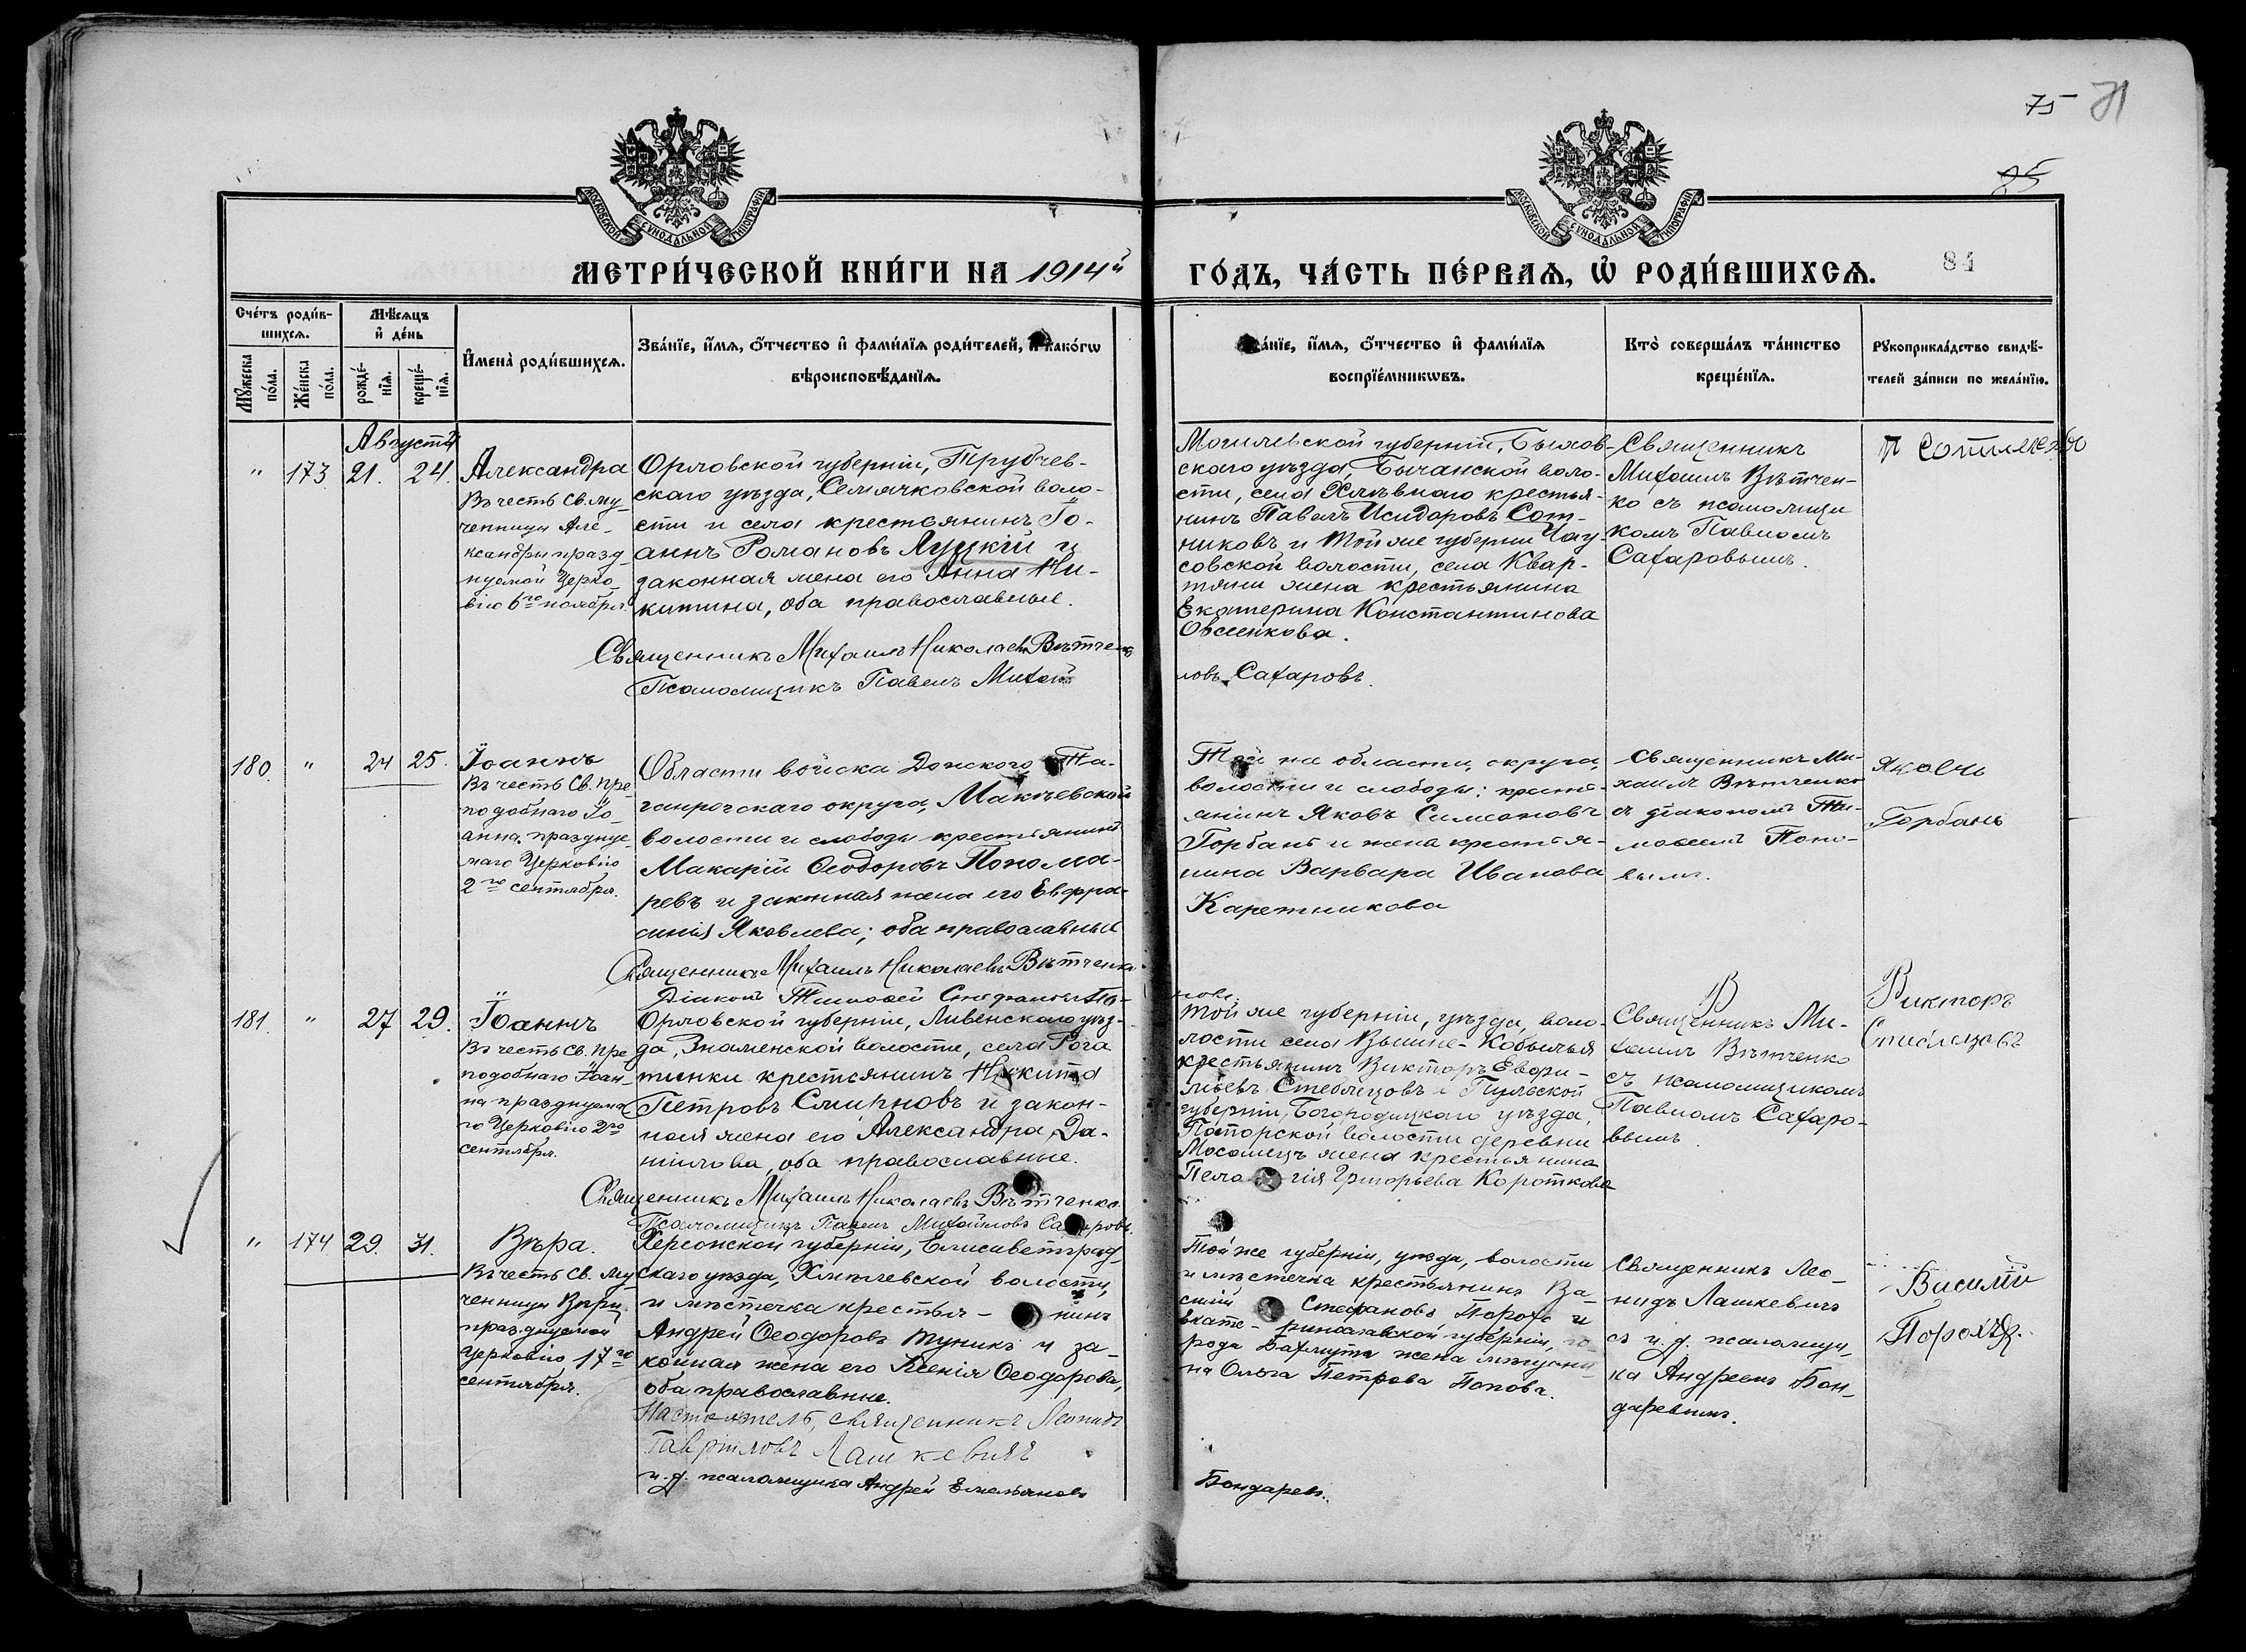 75 71
85
МОСКОВСКОЙ СѴНОДАЛЬНОЙ ТИПОГРАФІИ
МОСКОВСКОЙ СѴНОДАЛЬНОЙ ТИПОГРАФІИ
МЕТРИ́ЧЕСКОЙ КНИ́ГИ НА 1914й
ГО́ДЪ, ЧА́СТЬ ПЕ́РВАѦ, Ѽ РОДИ́ВШИХСѦ.
84
Сче́тъ роди́в-
шихсѧ.
Мѣ́сѧцъ
и҆ де́нь
Мꙋ́жеска
по́ла.
Же́нска
по́ла.
рожде́-
нїѧ.
креще́-
нїѧ.
И҆мена̀ роди́вшихсѧ.
Зва́нїе, и҆́мѧ, ѻ҆́тчество и҆ фами́лїѧ роди́телей, и҆ како́гѡ
вѣроисповѣ́данїѧ.
Зва́нїе, и҆́мѧ, ѻ҆́тчество и҆ фами́лїѧ
воспрїе́мникѡвъ.
Кто̀ соверша́лъ та́инство
креще́нїѧ.
Рꙋкоприкла́дство свидѣ́-
телей за́писи по жела́нїю.
Августъ
" 173 21. 24.
Александра
Въ честь Св. му-
ченицы Але-
ксандры празд-
нуемой Церко-
вію 6го ноября.
Орловской губерніи, Трубчев-
скаго уѣзда, Семячковской воло-
сти и села крестьянинъ Іо-
аннъ Романовъ Луцкій и
законная жена его Анна Ни-
китина, оба православные.
Священникъ Михаилъ Николаевъ Вѣтченко
Псаломщикъ Павелъ Михай
Могилевской губерніи, Быхов-
скаго уѣзда, Бычанской воло-
сти, села Хлѣвнаго крестья-
нинъ Павелъ Исидоровъ Сот-
никовъ и той же губерніи Чау-
совской волости, села Квар-
тяни жена крестьянина
Екатерина Константинова
Овсенкова.
ловъ Сахаровъ.
Священникъ
Михаилъ Вѣтчен-
ко съ псаломщи
комъ Павломъ
Сахаровымъ.
П
180. " 24 25.
Іоаннъ
Въ честь Св. Пре-
подобнаго Іо-
анна, празднуе-
маго Церковію
2го сентября.
Области войска Донского, Та-
ганрогскаго округа, Макѣевской
волости и слободы крестьянинъ
Макарій Ѳеодоровъ Понома-
ревъ и законная жена его Евфро-
синія Яковлева; оба православные
Священникъ Михаилъ Николаевъ Вѣтченко
Діаконъ Тимоѳей Стефановъ По-
Той же области, округа,
волости и слободы: кресть-
янинъ Яковъ Симеоновъ
Горбань и жена крестья-
нина Варвара Иванова
Каретникова
повъ.
Священникъ Ми-
хаилъ Вѣтченко
съ діакономъ Ти-
моѳеемъ Попо-
вымъ.
Яковъ
Горбань
181. " 27 29.
Іоаннъ
Въ честь Св. Пре
подобнаго Іоан-
на празднуема-
го Церковію 2го
сентября.
Орловской губерніи, Ливенскаго уѣз-
да, Знаменской волости, села Рога
тинки крестьянинъ Никита
Петровъ Смирновъ и закон-
ная жена его Александра Да-
нилова, оба православные.
Священникъ Михаилъ Николаевъ Вѣтченко
Псаломщикъ Павелъ Михайловъ Сахаровъ.
Той же губерніи, уѣзда, воло-
лости села Вышне-Кобылья
крестьянинъ Викторъ
Стеблецовъ и Тульской
губерніи, Богородицкаго уѣзда,
волости деревни
жена крестьянина
Пелагія Григорьева Короткова
Священникъ Ми-
хаилъ Вѣтченко
съ псаломщикомъ
Павломъ Сахаро-
вымъ.
Викторъ
Стеблецовъ
" 174 29. 31.
Вѣра.
Въ честь св. му-
ченицы Вѣры
празднуемой
Церковію, 17го
сентября.
Херсонской губерніи, Елисаветград-
скаго уѣзда, Хмѣлевской волости,
и мѣстечка крестья- нинъ
Андрей Ѳеодоровъ Туникъ и за-
конная жена его Ксенія Ѳеодорова,
оба православные.
Настоятель, священникъ Леонидъ
Гавріиловъ Лашкевичъ
и. д. псаломщика Андрей Емельяновъ
Той же губерніи, уѣзда, волости
и мѣстечка крестьянинъ Ва-
силій Стефановъ Порохъ и
Екате- ринославской губерніи, го
рода Бахмута жена мѣщани-
на Ольга Петрова Попова.
Бондаревъ.
Священникъ Лео-
нидъ Лашкевичъ
съ и. д. псаломщи-
ка Андреемъ Бон-
даревымъ.
Василій
Порохъ